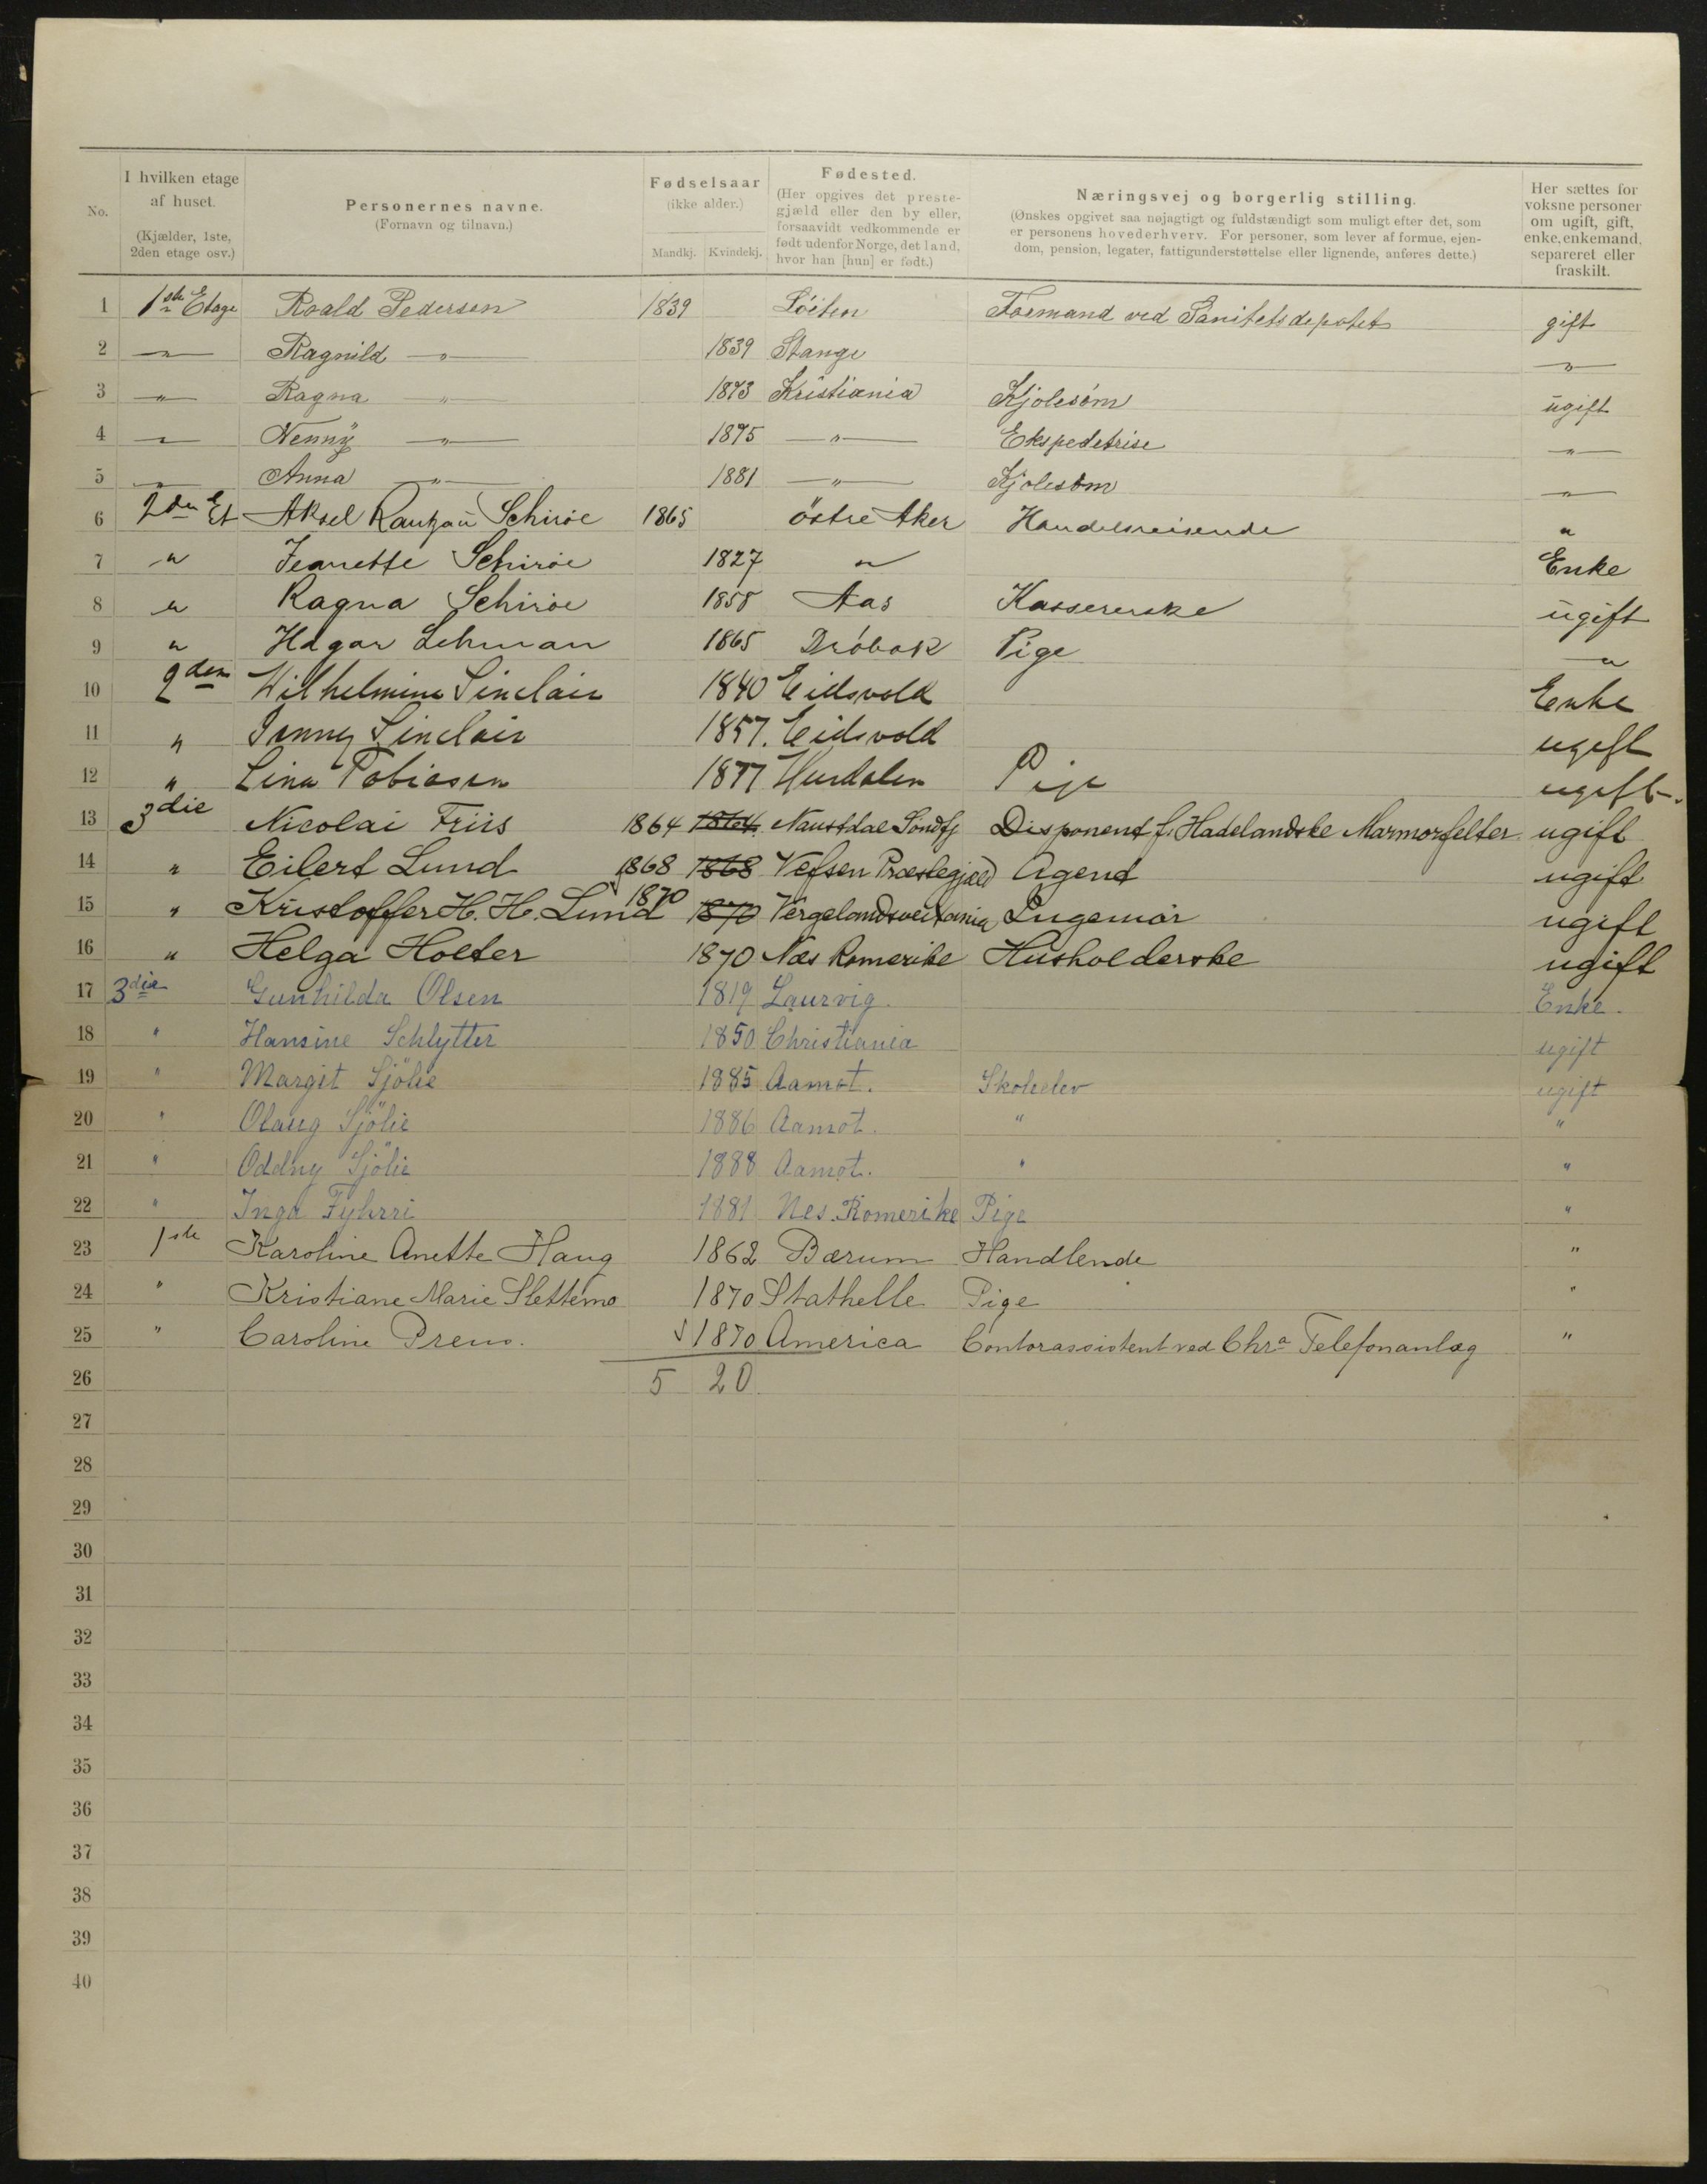 No.
I hvilken etage af huset. (Kjælder, 1ste, 2den etage osv.)
Personernes navne. (Fornavn og tilnavn.)
Fødselsaar (ikke alder.)
Mandkj. Kvindekj.
Fødested. (Her opgives det prestegjæld eller den by eller, forsaavidt vedkommende er født udenfor Norge, det land, hvor han [hun] er født.)
Næringsvej og borgerlig stilling. (Ønskes opgivet saa nøjagtigt og fuldstændigt som muligt efter det, som er personens hovederhverv. For personer, som lever af formue, ejendom, pension, legater, fattigunderstøttelse eller lignende, anføres dette.)
Her sættes for voksne personer om ugift, gift, enke, enkemand, separeret eller fraskilt.
1 1ste Etage Roald Pedersen 1839 Löiten Formand ved Sanitetsdepotet gift
2 " Ragnild " 1839 Stange "
3 " Ragna " 1873 Kristiania Kjolesöm ugift
4 " Nenny " 1875 " Ekspedetrise "
5 " Anna " 1881 " Kjolesöm "
6 2den Et Aksel Rantzau Schiröe 1865 östre Aker Handelsreisende "
7 " Jeanette Schiröe 1827 " Enke
8 " Ragna Schiröe 1858 Aas Kassererske ugift
9 " Hagar Lehman 1865 Dröbak Pige "
10 2den Wilhelmine Sinclair 1840 Eidsvold Enke
11 " Jenny Sinclair 1857. Eidsvold ugift
12 " Lina Tobiasen 1877 Hurdalen Pige ugift.
13 3die Nicolai Friis 1864 1864. Naustdal Söndfj Disponent f. Hadelandske Marmorfelter ugift
14 " Eilert Lund 1868 1868 Vefsen Præstegjæld Agend ugift
15 " Kristoffer H. H. Lund 1870 1870 Ingeniör ugift
16 " Helga Holter 1870 Næs Romerike Husholderske ugift
17 3die Gunhilda Olsen 1819 Laurvig. Enke.
18 " Hansine Schlytter 1850 Christiania ugift
19 " Margit Sjölie 1885 Aamot. Skoleelev ugift
20 " Olaug Sjölie 1886 Aamot. " "
21 " Oddny Sjölie 1888 Aamot. " "
22 " Inga Fyhrri 1881 Nes. Romerike Pige "
23 1ste Karoline Anette Haug 1862 Bærum Handlende "
24 " Kristiane Marie Slettemo 1870 Stathelle Pige "
25 " Caroline Preus. 1870 America Contorassistent ved Chra Telefonanlæg "
26 5 20
27
28
29
30
31
32
33
34
35
36
37
38
39
40